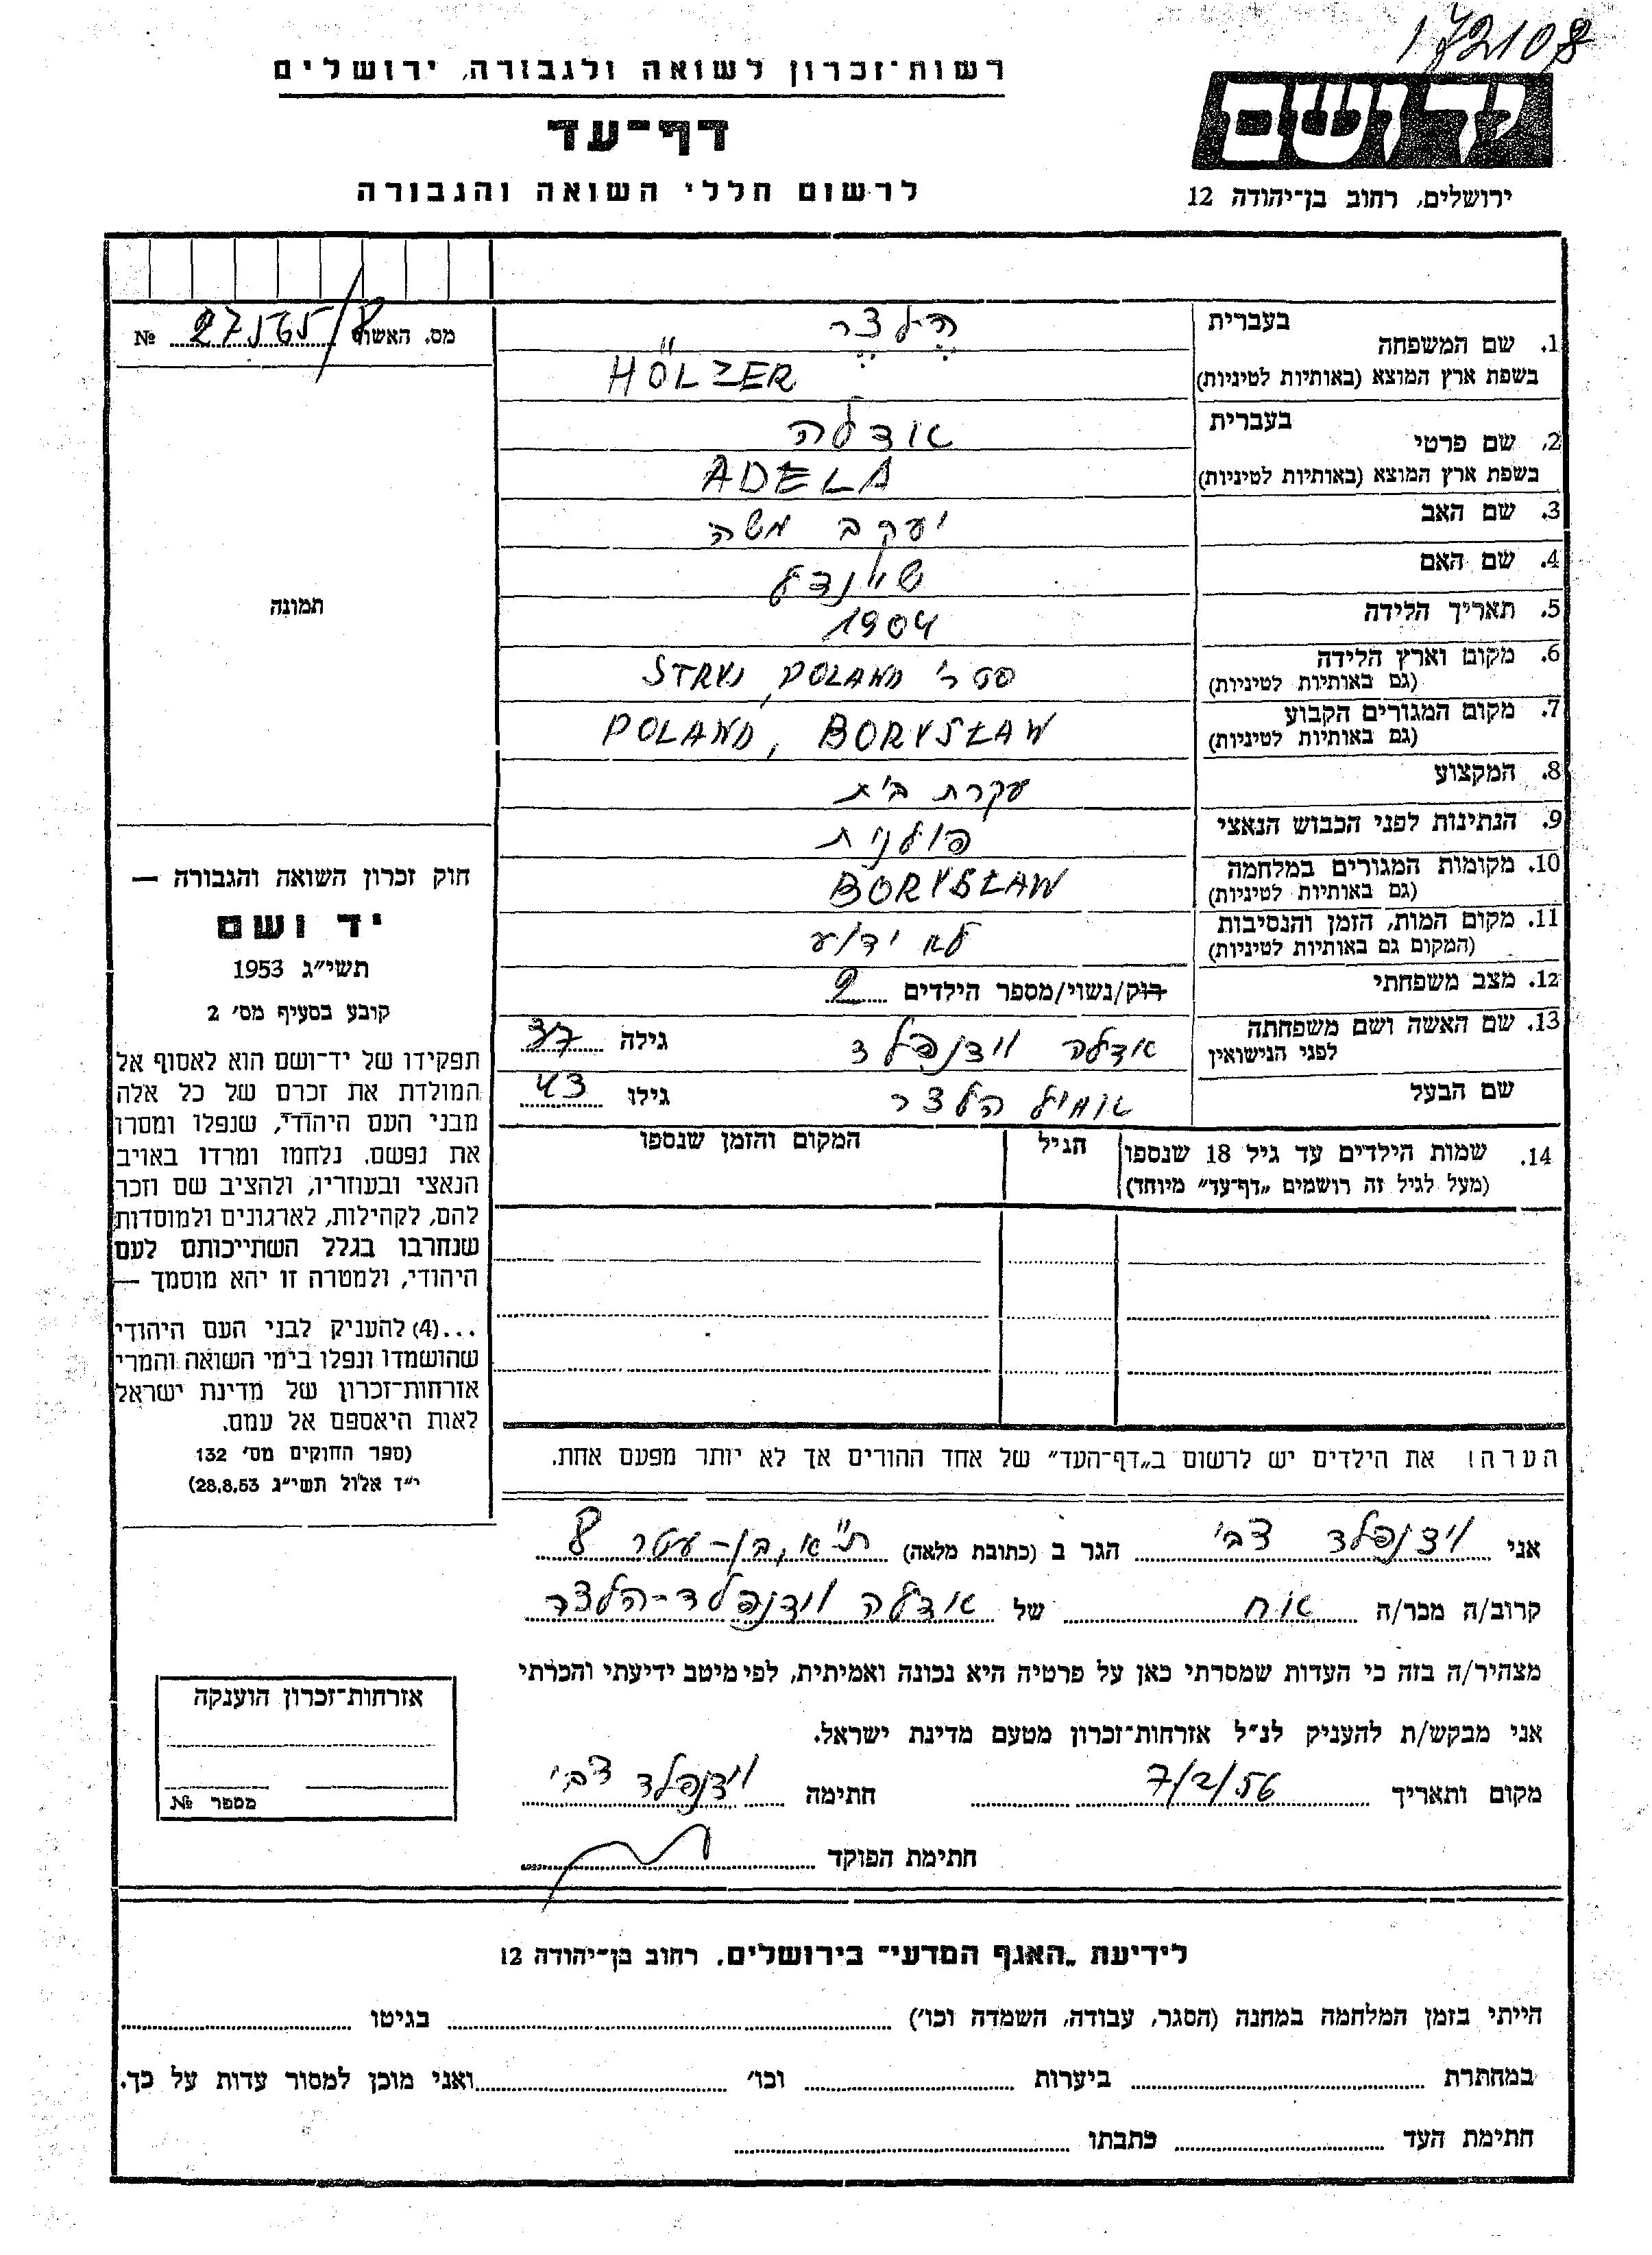 172108
רשות־זכרון לשואה ולגבורה, ירושלים
דף־עד
לרשום חללי השואה והגבורה
יד ושם
ירושלים, רחוב בן־יהודה 12
מס. האשור 27565/8 №
תמונה
חוק זכרון השואה והגבורה —
יד ושם
תשי״ג 1953
קובע בסעיף מס׳ 2
תפקידו של יד־ושם הוא לאסוף אל
המולדת את זכרם של כל אלה
מבני העם היהודי, שנפלו ומסרו
את נפשם, נלחמו ומרדו באויב
הנאצי ובעוזריו, ולהציב שם וזכר
להם, לקהילות, לארגונים ולמוסדות
שנחרבו בגלל השתייכותם לעם
היהודי, ולמטרה זו יהא מוסמך —
...(4) להעניק לבני העם היהודי
שהושמדו ונפלו בימי השואה והמרי
אזרחות־זכרון של מדינת ישראל
לאות היאספם אל עמם.
(ספר החוקים מס׳ 132
י״ז אלול תשי״ג 28.8.53)
בעברית
1. שם המשפחה הלצר
בשפת ארץ המוצא (באותיות לטיניות) HÖLZER
בעברית
2. שם פרטי אדלה
בשפת ארץ המוצא (באותיות לטיניות) ADELA
3. שם האב יעקב משה
4. שם האם שיינדל
5. תאריך הלידה 1904
6. מקום וארץ הלידה סטרי STRYJ, POLAND
(גם באותיות לטיניות)
7. מקום המגורים הקבוע POLAND, BORYSŁAW
(גם באותיות לטיניות)
8. המקצוע עקרת בית
9. הנתינות לפני הכבוש הנאצי פולנית
10. מקומות המגורים במלחמה BORYSŁAW
(גם באותיות לטיניות)
11. מקום המות, הזמן והנסיבות לא ידוע
(המקום גם באותיות לטיניות)
12. מצב משפחתי רוק/נשוי/מספר הילדים 2
13. שם האשה ושם משפחתה לפני הנישואין אדלה וידנפלד גילה 37
שם הבעל הלצר גילו 43
14. שמות הילדים עד גיל 18 שנספו הגיל המקום והזמן שנספו
(מעל לגיל זה רושמים „דף־עד״ מיוחד)
הערה: את הילדים יש לרשום ב„דף־העד״ של אחד ההורים אך לא יותר מפעם אחת.
אני וידנפלד צבי הגר ב (כתובת מלאה) ת״א, בן-עטר 8
קרוב/ה מכר/ה אח של אדלה וידנפלד-הלצר
מצהיר/ה בזה כי העדות שמסרתי כאן על פרטיה היא נכונה ואמיתית, לפי מיטב ידיעתי והכרתי
אני מבקש/ת להעניק לנ״ל אזרחות־זכרון מטעם מדינת ישראל.
מקום ותאריך 7/2/56 חתימה וידנפלד צבי
חתימת הפוקד
אזרחות־זכרון הוענקה
מספר №
לידיעת „האגף המדעי״ בירושלים. רחוב בן־יהודה 12
הייתי בזמן המלחמה במחנה (הסגר, עבודה, השמדה וכו׳) בגיטו
במחתרת ביערות וכו׳ ואני מוכן למסור עדות על כך.
חתימת העד כתבתו